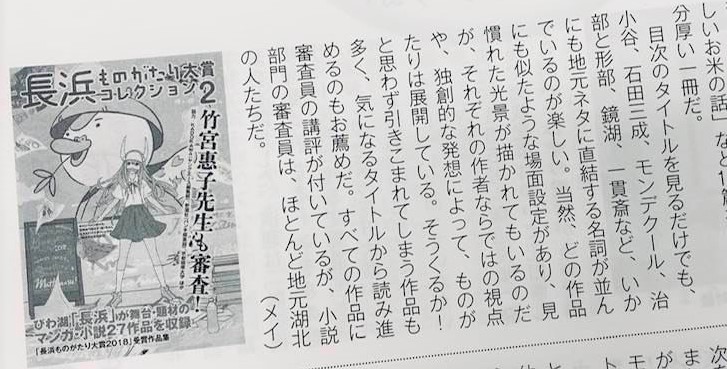 しいお米の話」など
分厚い一冊だ。
目次のタイトルを見るだけでも、
小谷、石田三成、モンデクール、治
部と形部、鏡湖、一貫斎など、いか
にも地元ネタに直結する名詞が並ん
でいるのが楽しい。当然、どの作品
にも似たような場面設定があり、見
慣れた光景が描かれてもいるのだ
が、それぞれの作者ならではの視点
や、独創的な発想によって、ものが
たりは展開している。そうくるか!
と思わず引きこまれてしまう作品も
多く、気になるタイトルから読み進
めるのもお薦めだ。すべての作品に
審査員の講評が付いているが、小説
部門の審査員は、ほとんど地元湖北
の人たちだ。
(メイ)
長浜ものがたり大賞
コレクション2
竹宮惠子先生も審査!
びわ湖「長浜」が舞台・題材の
マンガ・小説27作品を収録
「長浜ものがたり大賞2018」受賞作品集